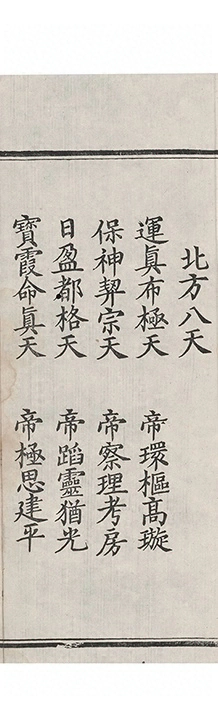 北方八天
運眞布極天　帝環樞高璇
保神契宗天　帝察理考房
日盈都格天　帝蹈靈猶光
寶霞命眞天　帝極思建平